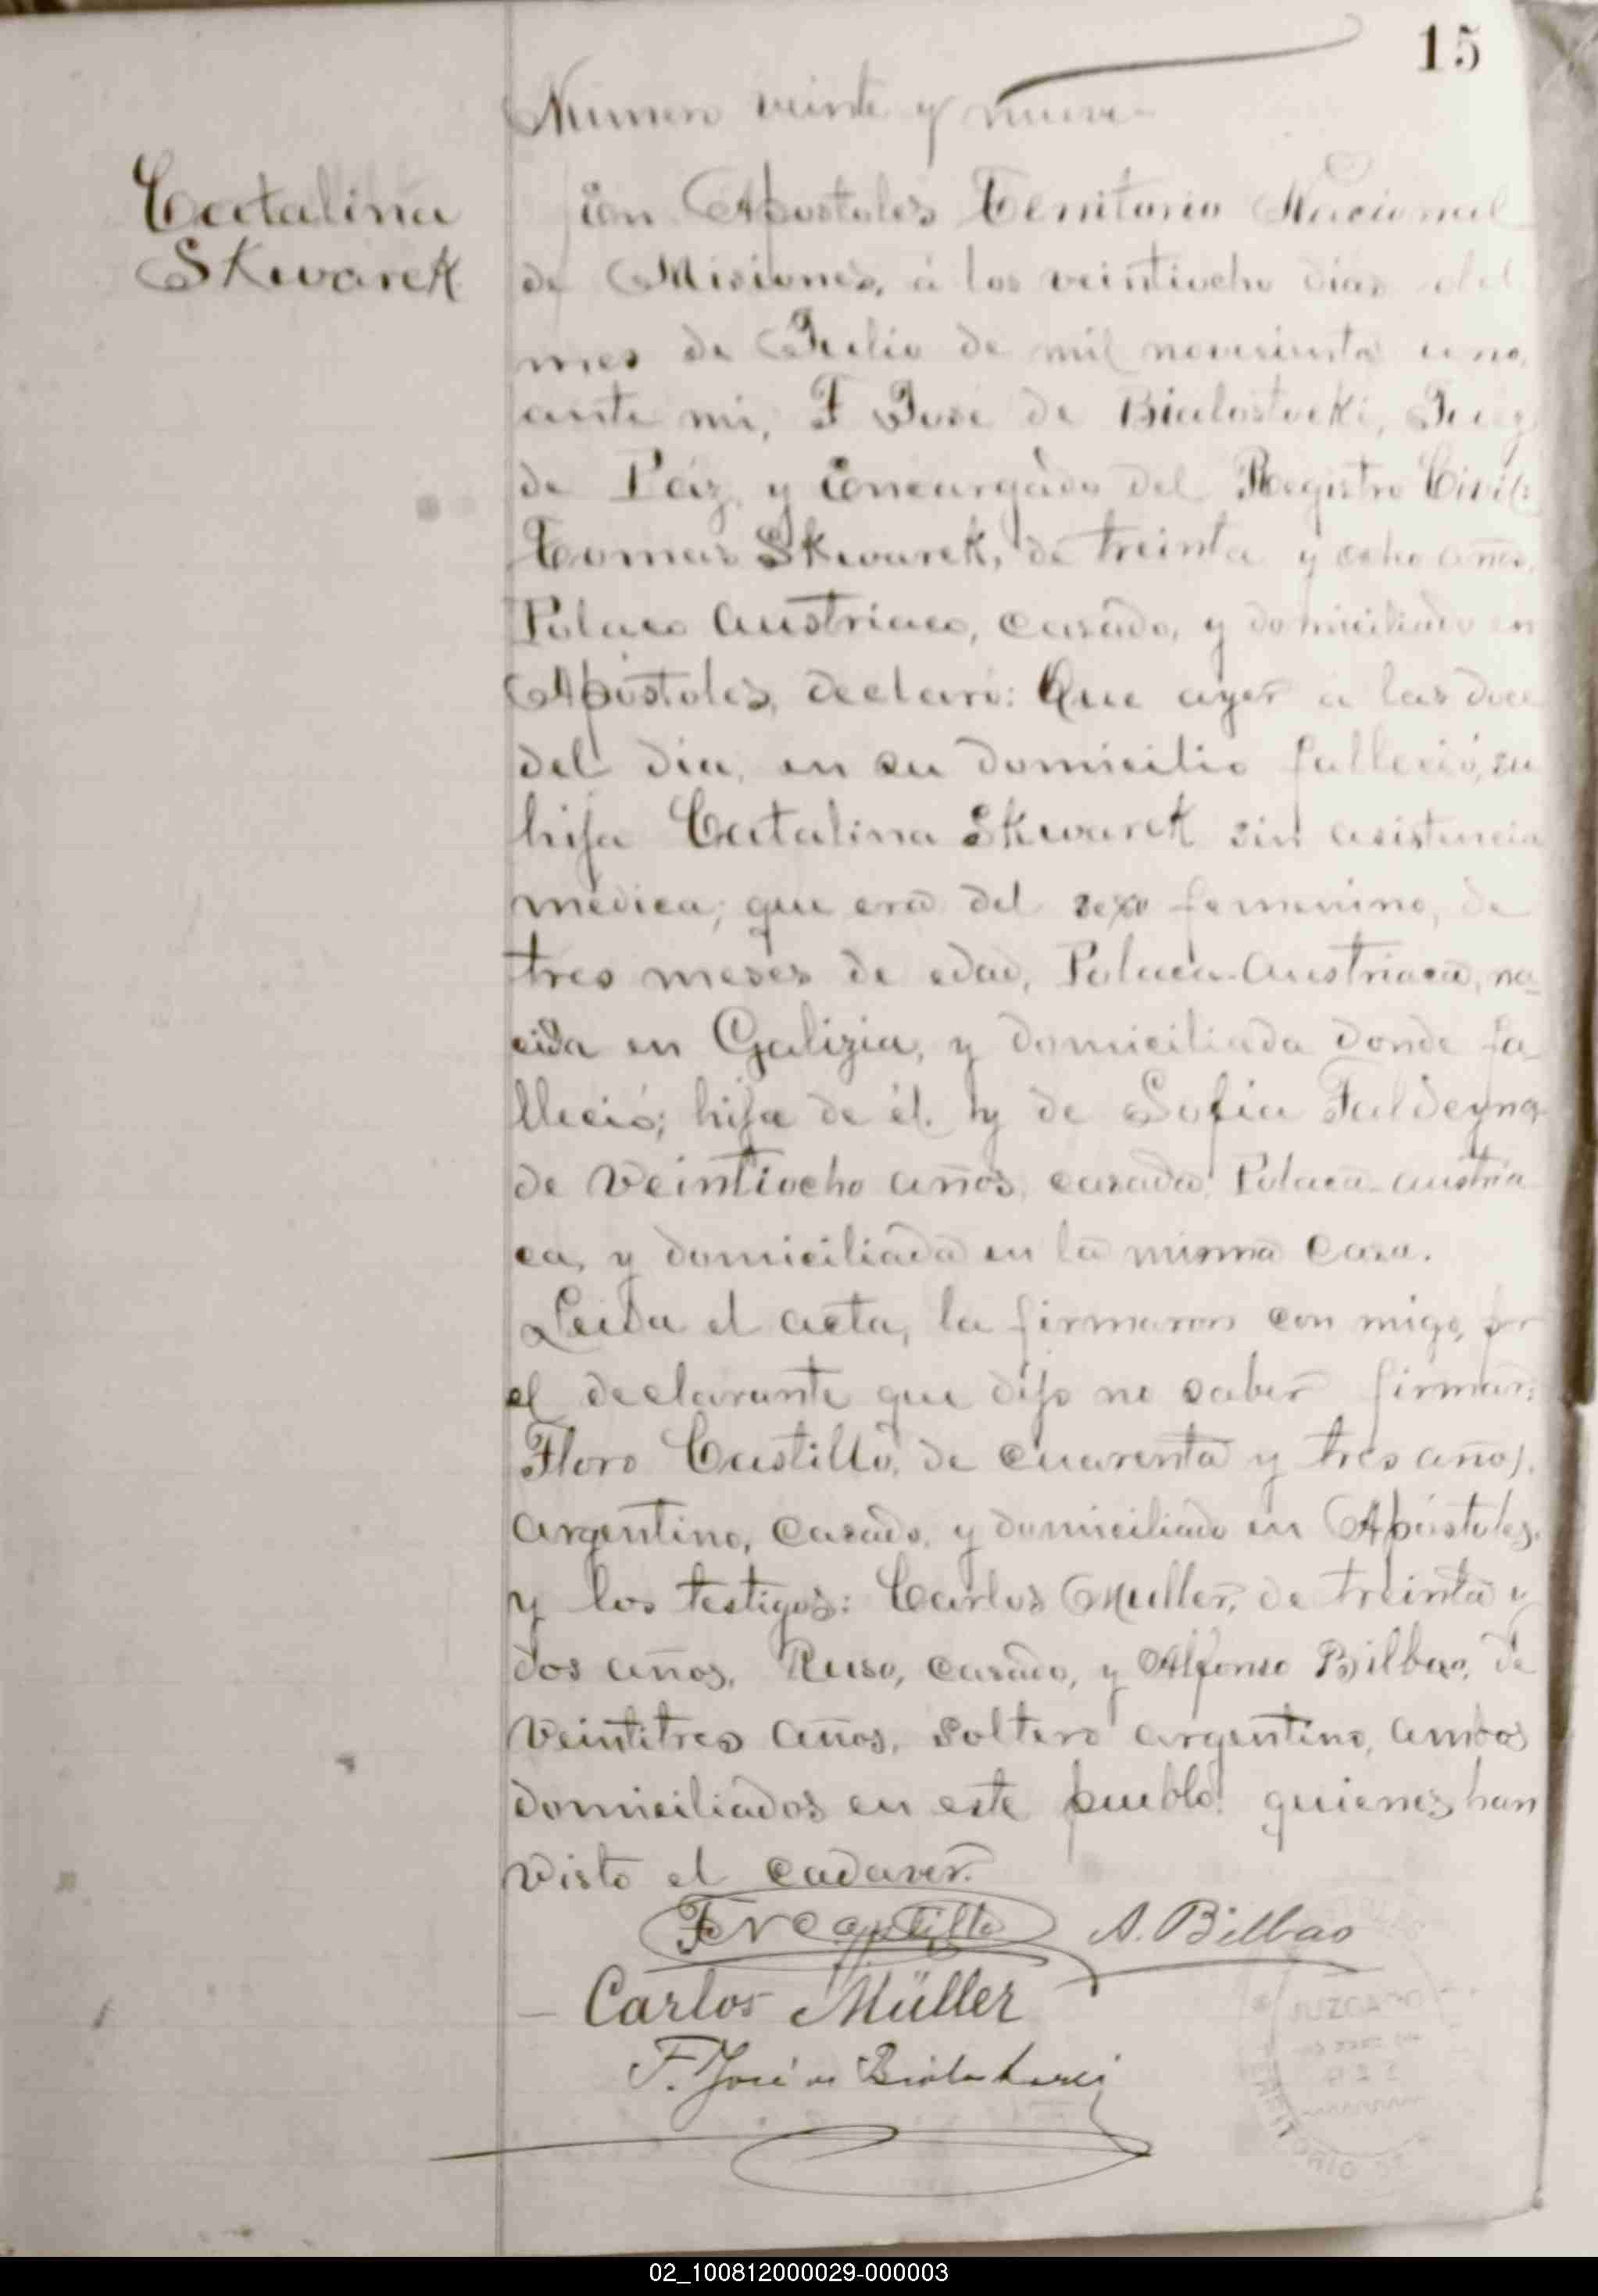 15
Numero veinte y nueve
Catalina
Skwarek
En Apostoles Territorio Nacional
de Misiones, á los veintiocho dias del
mes de Julio de mil novecientos uno,
ante mi, F José de Bialostocki, Juez
de Páz y Encargado del Registro Civil:
Tomas Skwarek, de treinta y ocho años,
Polaco Austriaco, casado, y domiciliado en
Apóstoles, declaró: Que ayer á las doce
del dia, en su domicilio falleció, su
hija Catalina Skwarek sin asistencia
médica; que era del sexo femenino, de
tres meses de edad, Polaca-Austriaca, na-
cida en Galizia, y domiciliada donde fa-
lleció; hija de él y de Sofia Faldeyna
de veintiocho años, casada, Polaca-austria
ca, y domiciliada en la misma casa.
Leida el acta, la firmaron con migo, por
el declarante que dijo no saber firmar:
Floro Castillo, de cuarenta y tres años,
argentino, casado, y domiciliado en Apóstoles,
y los testigos: Carlos Muller, de treinta y
dos años, Ruso, casado, y Alfonso Bilbao, de
veintitres años, soltero argentino, ambos
domiciliados en este pueblo quienes han
visto el cadaver.
A. Bilbao
Carlos Müller
F. José de Bialostocki
JUZGADO
TERRITORIO DE
02_100812000029-000003